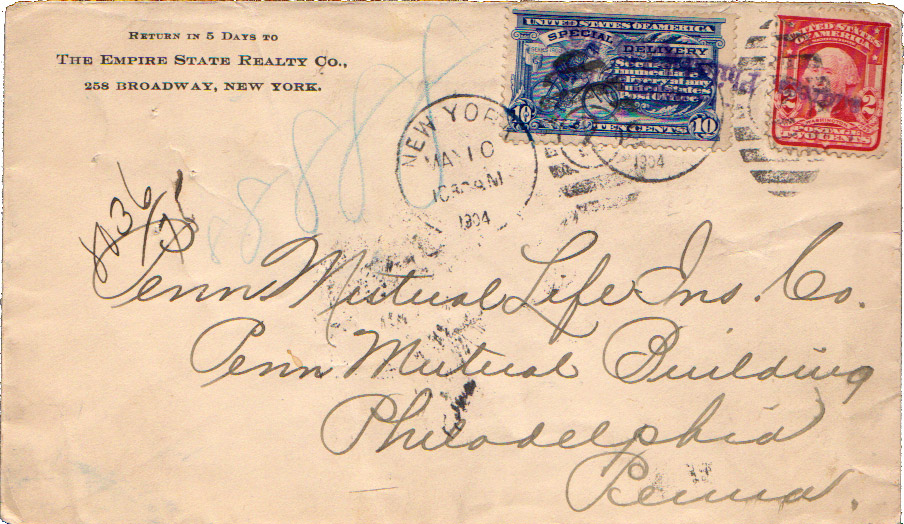 RETURN IN 5 DAYS TO
THE EMPIRE STATE REALTY CO.,
258 BROADWAY, NEW YORK.
UNITED STATES OF AMERICA
SPECIAL DELIVERY
Secures
immediate
Delivery at any
United States
Post Office
10 TEN CENTS 10
UNITED STATES
OF AMERICA
2 2
WASHINGTON
POSTAGE
TWO CENTS
NEW YORK
MAY 10
1904
1904
Penn Mutual Life Ins. Co.
Penn Mutual Building
Philadelphia
Penna.